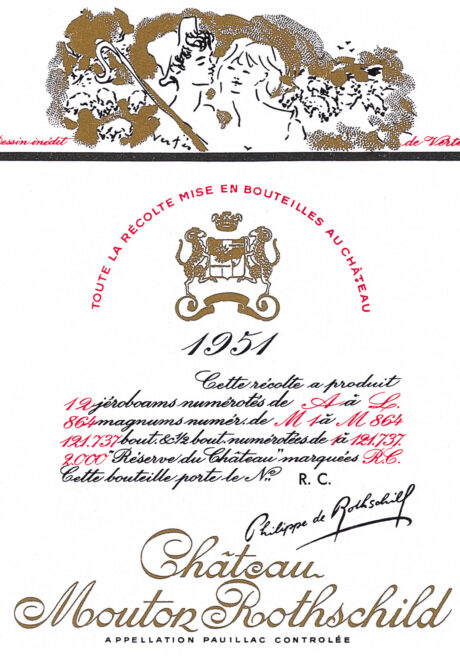 Vertès
Dessin inédit de Verte
TOUTE LA RÉCOLTE MISE EN BOUTEILLES AU CHÂTEAU
1951
Cette récolte a produit
12 jéroboams numérotés de A à L.
864 magnums numér. de M 1 à M 864
121.737 bout. & 1/2 bout. numérotées de 1 à 121.737
2.000 "Réserve du Château" marquées R.C.
Cette bouteille porte le No. R. C.
Philippe de Rothschild
Château
Mouton Rothschild
APPELLATION PAUILLAC CONTROLÉE